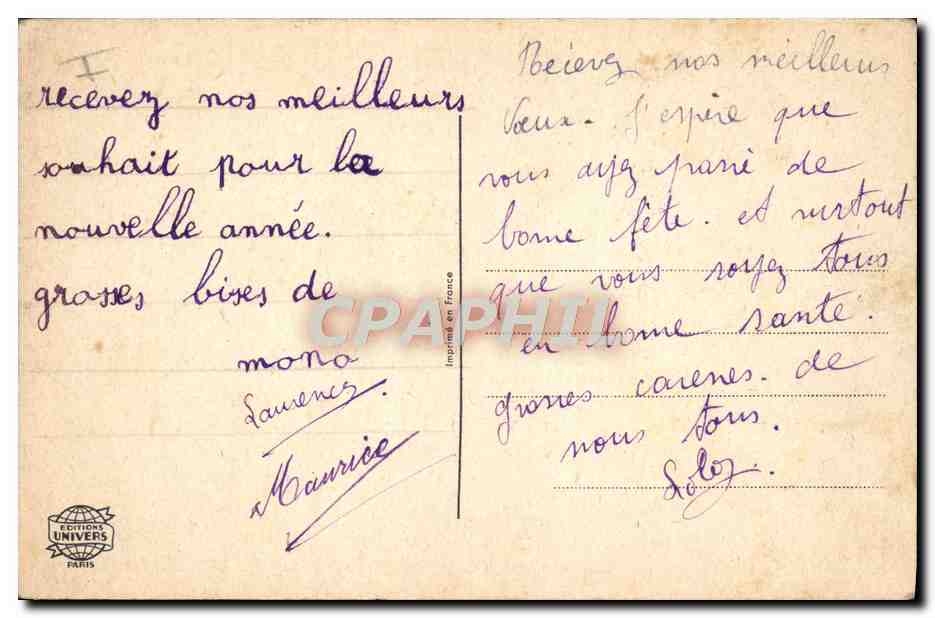 I
recevez nos meilleurs
souhait pour la
nouvelle année.
grosses bises de
mono
Laurence.
Maurice
EDITIONS
UNIVERS
PARIS
Imprimé en France
CPAPHIL
Recevez nos meilleurs
Vœux. J'espère que
vous ayez passé de
bonne fête. et surtout
que vous soyez tous
en bonne santé.
grosses caresses. de
nous tous.
Loloz.